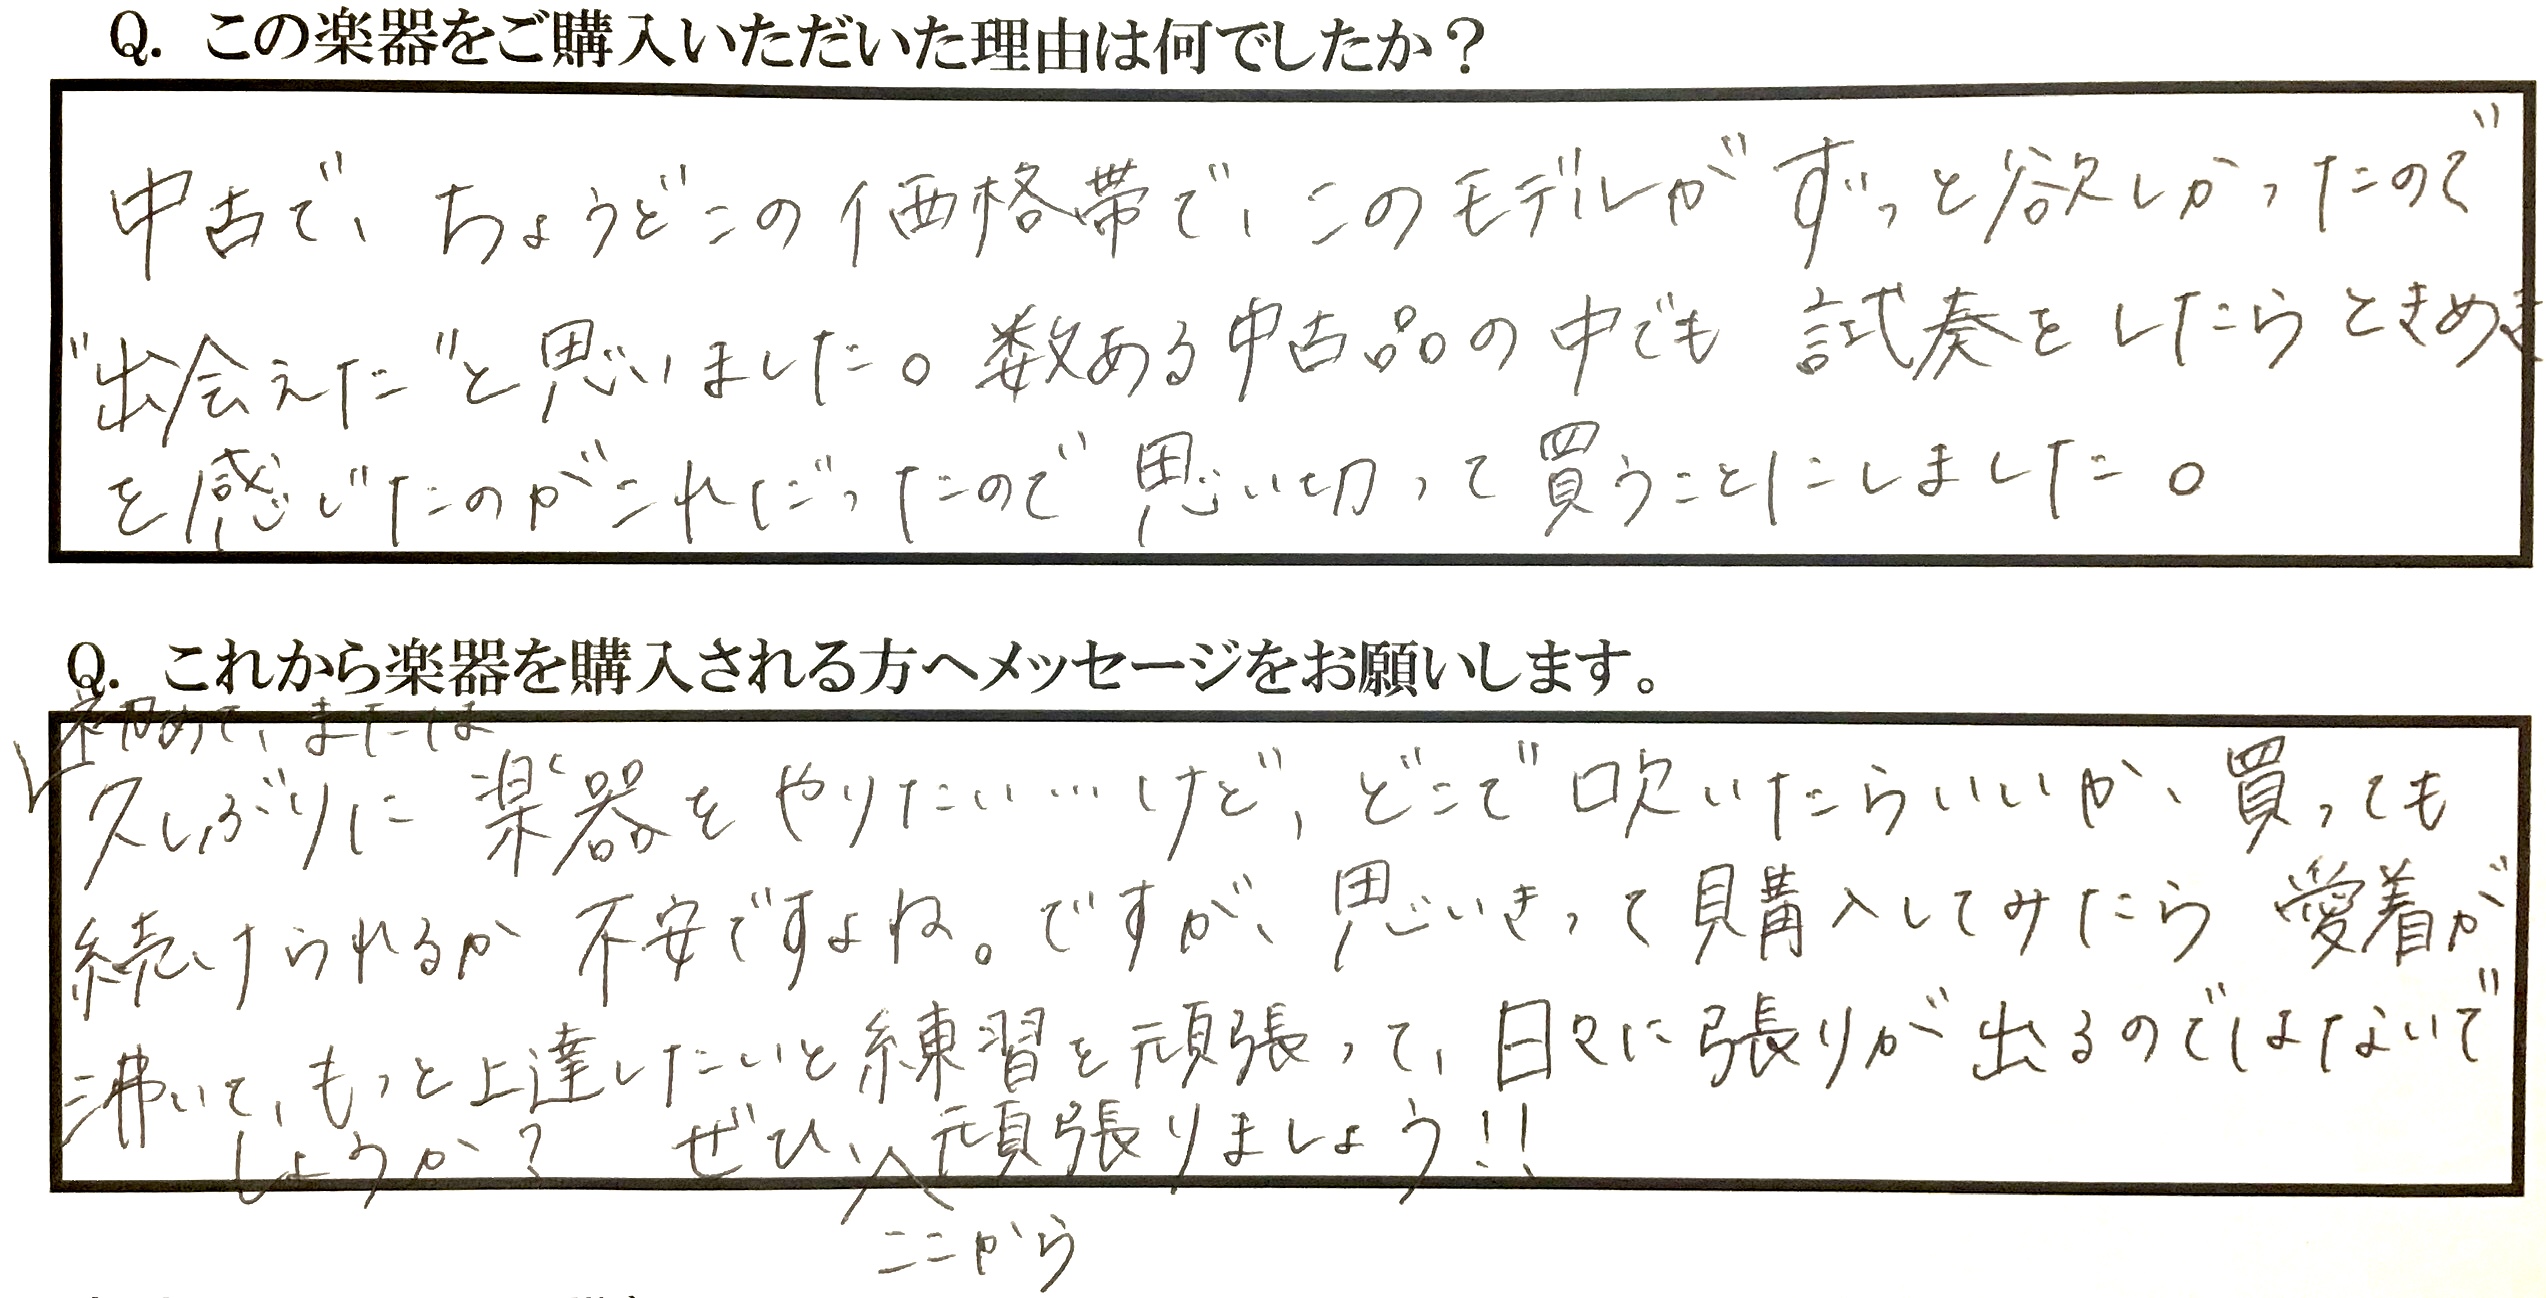 Q. この楽器をご購入いただいた理由は何でしたか？
中古で、ちょうどこの価格帯で、このモデルがずっと欲しかったので
"出会えた"と思いました。数ある中古品の中でも 試奏をしたらときめき
を感じたのがこれだったので 思い切って買うことにしました。
Q. これから楽器を購入される方へメッセージをお願いします。
初めて、または
久しぶりに 楽器をやりたい…けど、どこで吹いたらいいか、買っても
続けられるか 不安ですよね。ですが、思いきって購入してみたら 愛着が
沸いて、もっと上達したいと練習を頑張って、日々に張りが出るのではないで
しょうか？ ぜひ、頑張りましょう!!
ここから